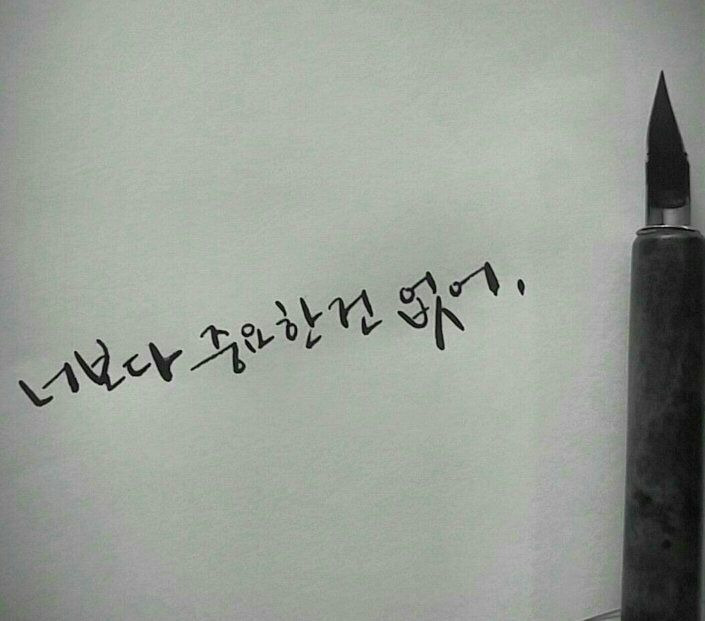 너보다 중요한건 없어.